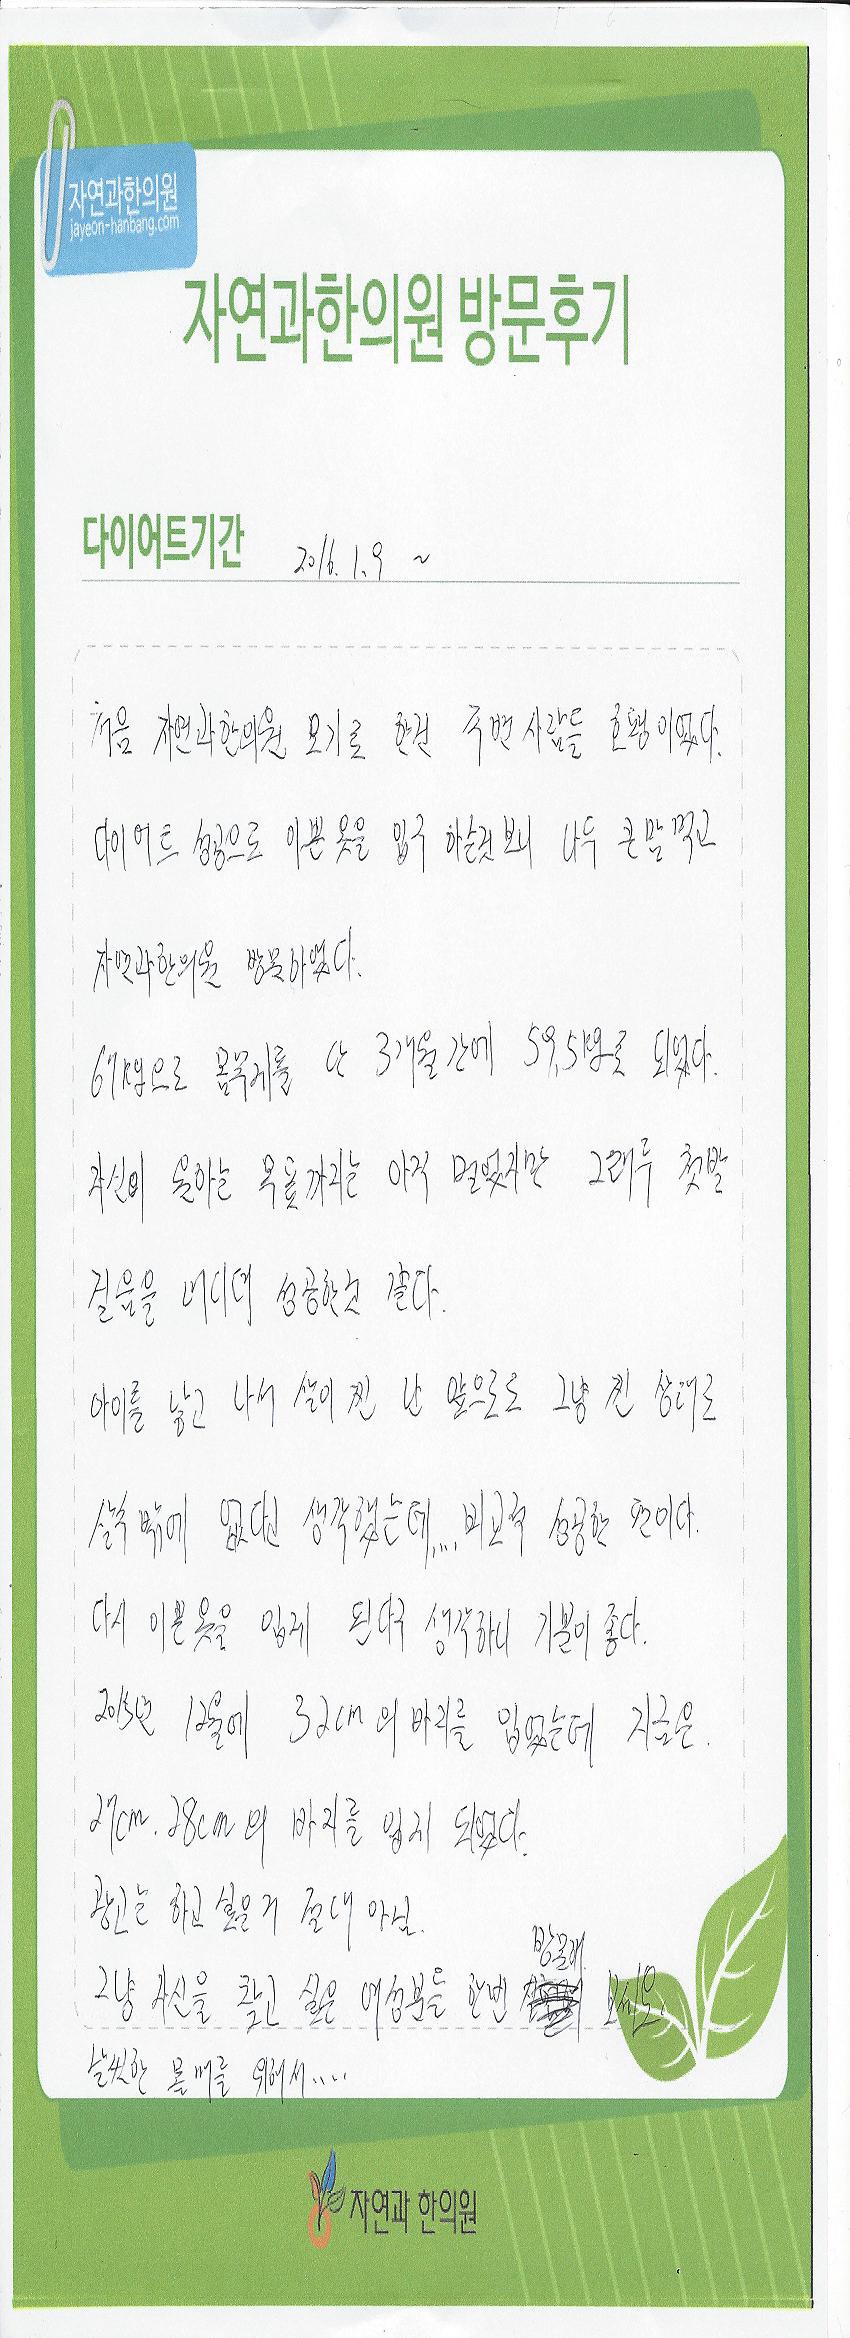 자연과한의원
jayeon-hanbang.com
자연과한의원 방문후기
다이어트기간 2016. 1. 9 ~
처음 자연과한의원 오기로 한건 주변 사람들 흐뎅이였다.
다이어트 성공으로 이쁜 옷을 입구 하는것 보니 나두 큰맘 먹고
자연과한의원 방문하였다.
67kg으로 몸무게를 단 3개월간에 59.5kg로 되었다.
자신이 원하는 목표까지는 아직 멀었지만 그래두 첫발
걸음을 내디뎌 성공한것 같다.
아이를 낳고 나서 살이 찐 난 앞으로도 그냥 찐 상태로
살수 밖에 없다고 생각했는데.... 비교적 성공한 편이다.
다시 이쁜 옷을 입게 된다구 생각하니 기분이 좋다.
2015년 12월에 32cm의 바지를 입었는데 지금은.
27cm. 28cm의 바지를 입게 되였다.
광고는 하고 싶은거 절대 아님.
방문해
그냥 자신을 찾고 싶은 여성분들 한번 보세요.
날씬한 몸매를 위해서....
자연과 한의원